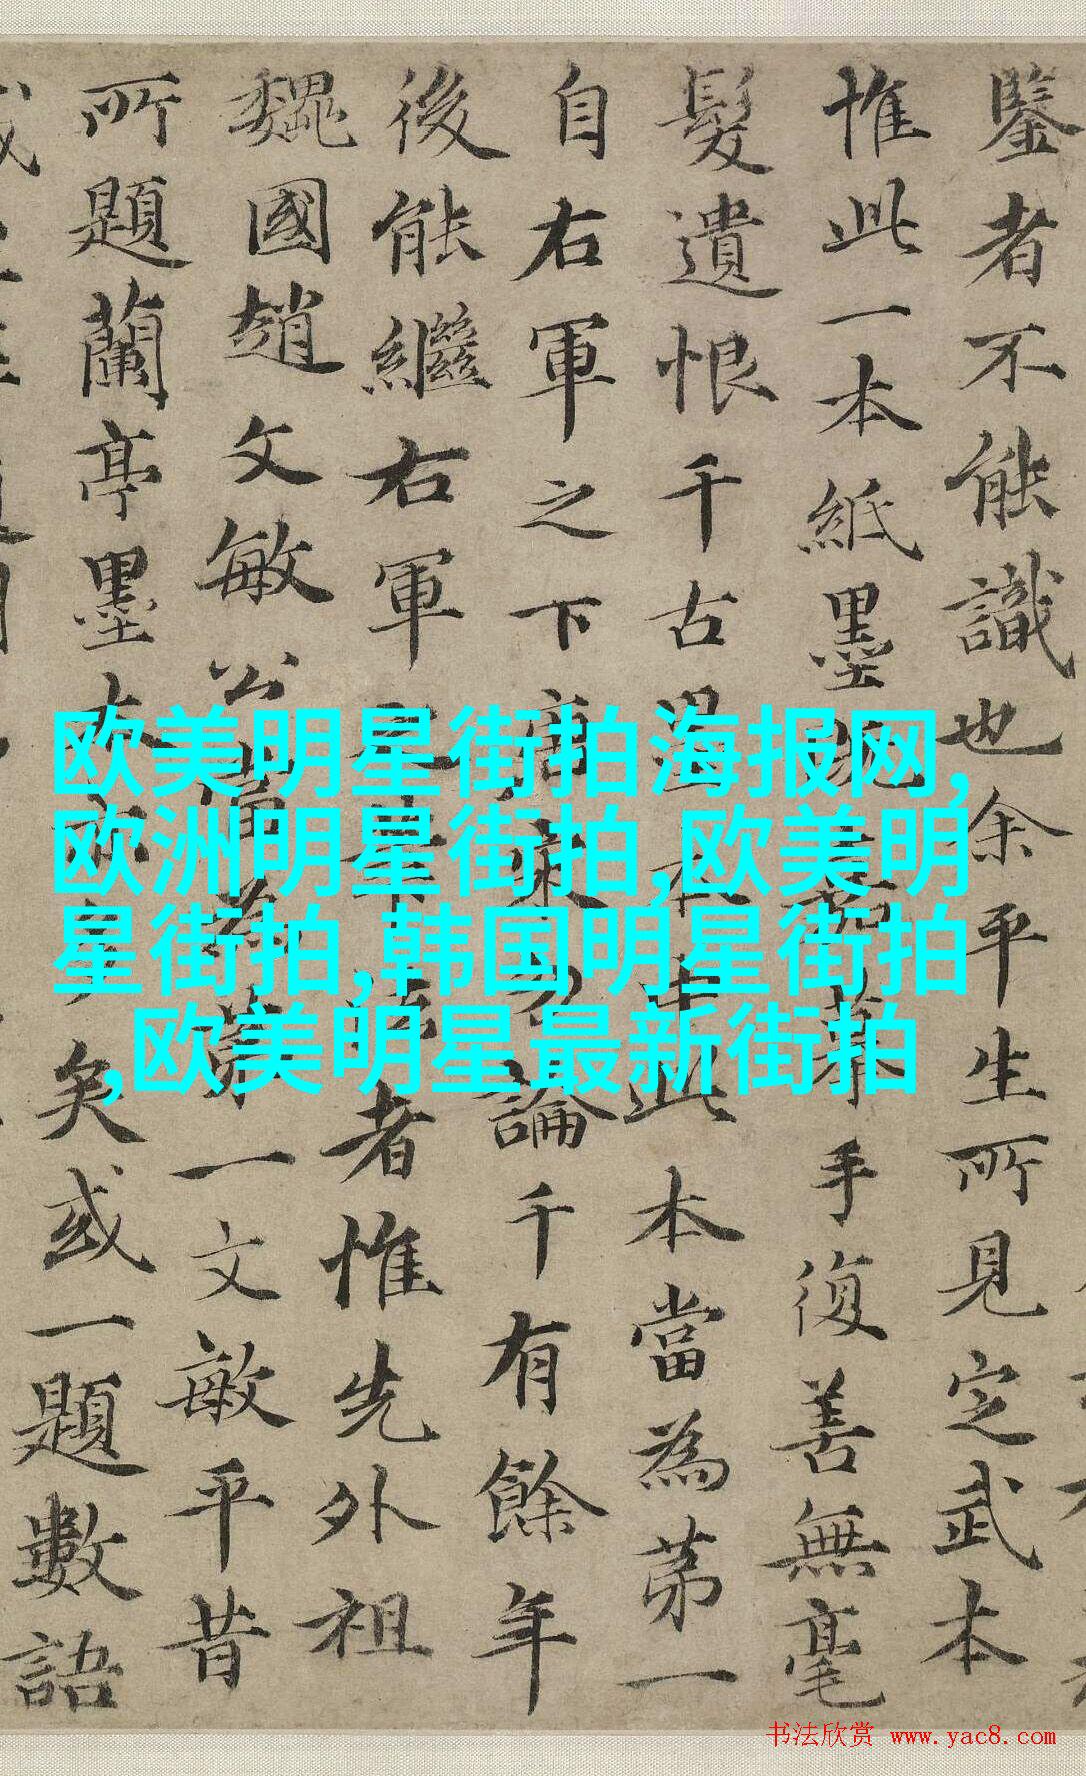 鑒者不能識也余平生所見定武本
惟此一本紙墨手復善無毫
髮遺恨千古墨本此本當為第一
自右軍之下論千有餘年
後能繼右軍筆法者惟先外祖
魏國趙文敏公為第一文敏平昔
所題蘭亭墨本亦多矣或一題數語
欧美明星街拍海报网,
欧洲明星街拍,欧美明
星街拍,韩国明星街拍
,欧美明星最新街拍
书法欣赏 www.yac8.com